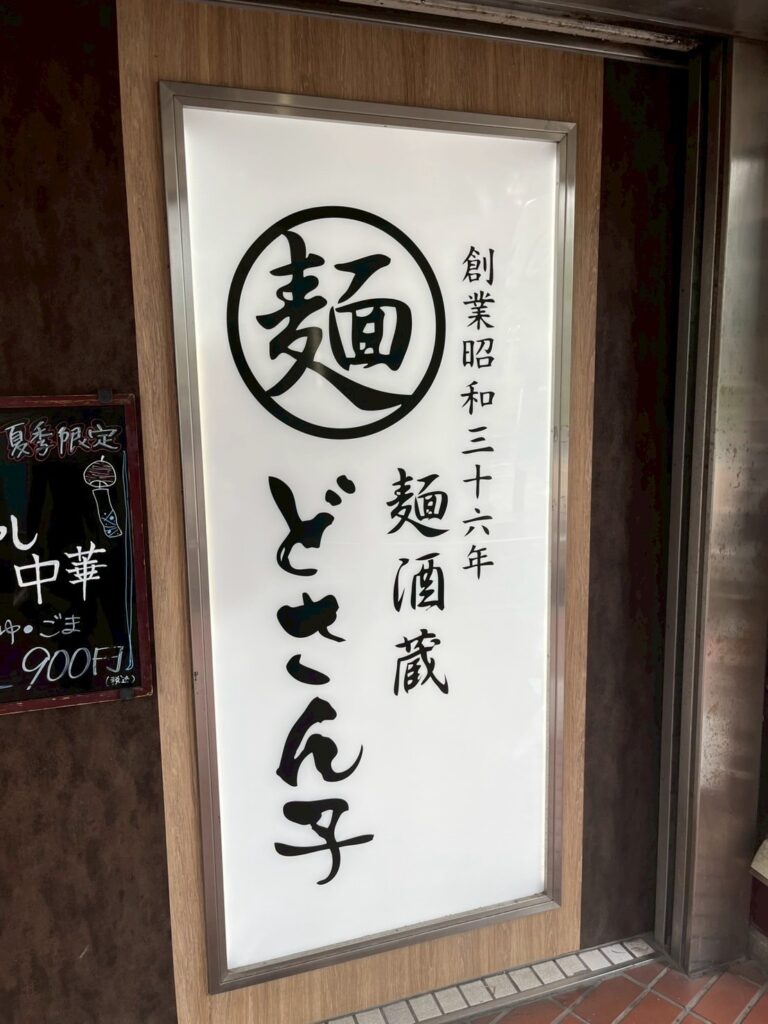 創業昭和三十六年
麺
麺酒蔵
どさん子
夏季限定
し
中華
ゆ・ごま
900円
(税込)